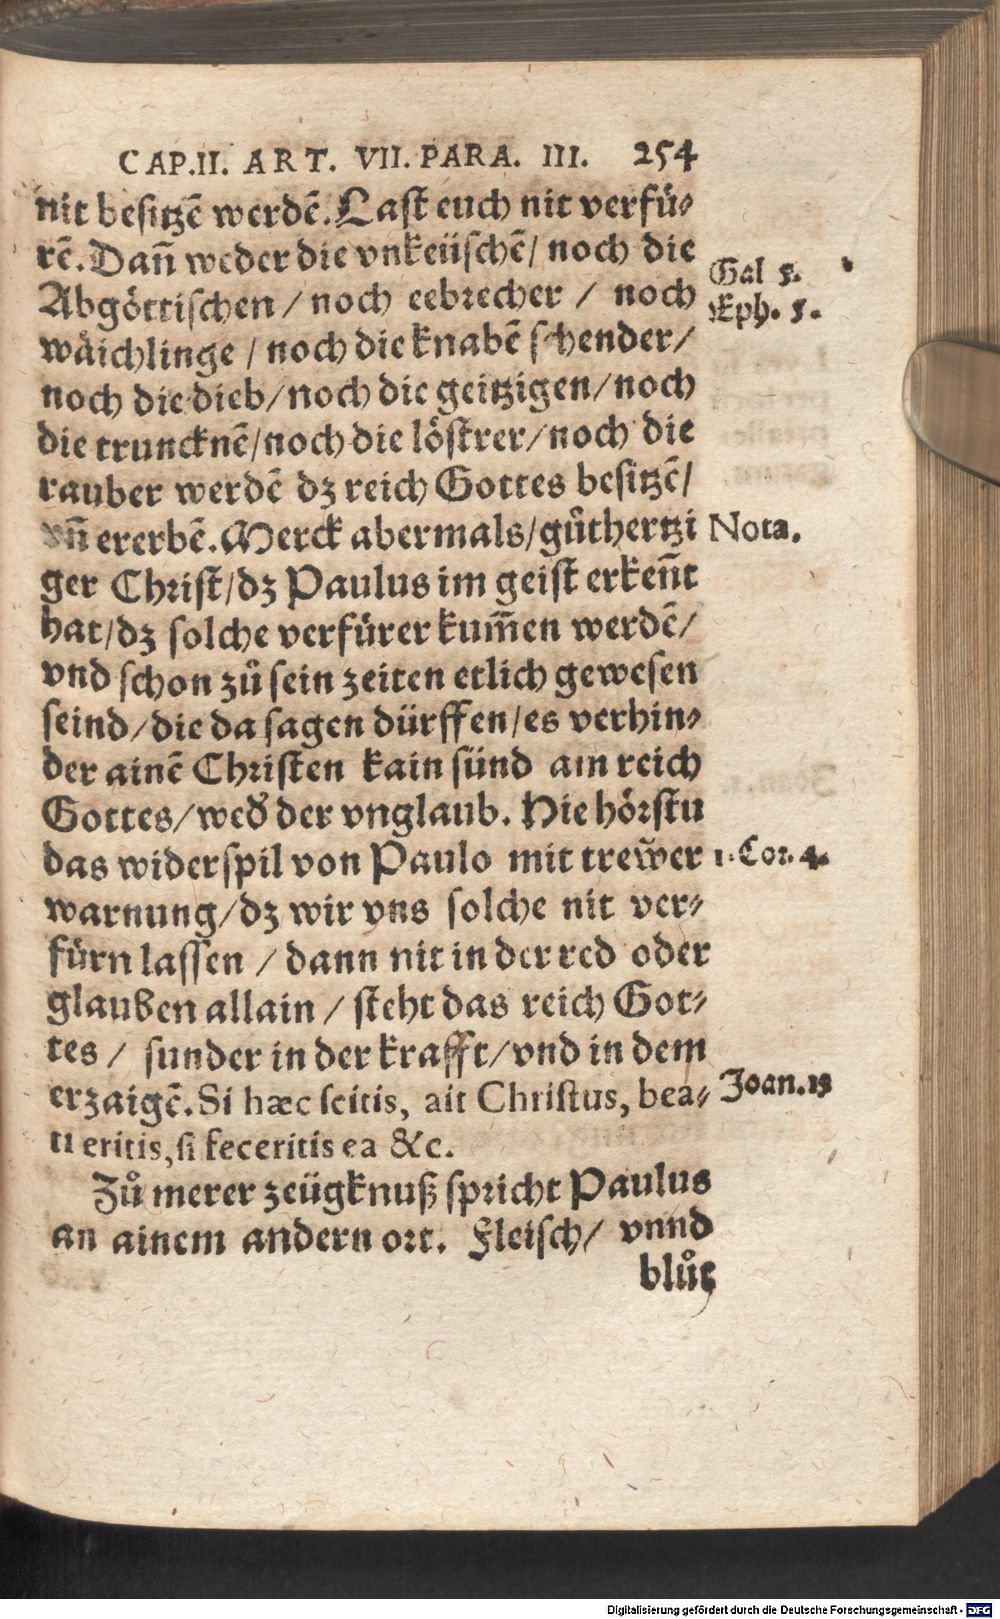 CAP.II. ART. VII. PARA. III. 254
nit besitzē werdē. Last euch nit verfü⸗
rē. Dañ weder die vnkeüschē/ noch die
Abgöttischen / noch eebrecher / noch
Gal 5.
Eph. 5.
wäichlinge / noch die knabē schender/
noch die dieb/ noch die geitzigen/ noch
die trunckne̅/ noch die löstrer/ noch die
rauber werdē dz reich Gottes besitzē/
vñ ererbē. Merck abermals/ gůthertzi
Nota.
ger Christ/ dz Paulus im geist erkeñt
hat/ dz solche verfürer kum̄en werdē/
vnd schon zů sein zeiten etlich gewesen
seind/ die da sagen dürffen/ es verhin⸗
der ainē Christen kain sünd am reich
Gottes/ wed̕ der vnglaub. Hie hörstu
das widerspil von Paulo mit trew̃er
1. Cor. 4.
warnung/ dz wir vns solche nit ver⸗
fürn lassen / dann nit in der red oder
glauben allain / steht das reich Got⸗
tes / sunder in der krafft/ vnd in dem
erzaigē. Si hæc scitis, ait Christus, bea⸗
Joan. 13
ti eritis, si feceritis ea &c.
Zů merer zeügknuß spricht Paulus
an ainem andern ort. Fleisch/ vnnd
blůt
Digitalisierung gefördert durch die Deutsche Forschungsgemeinschaft - DFG